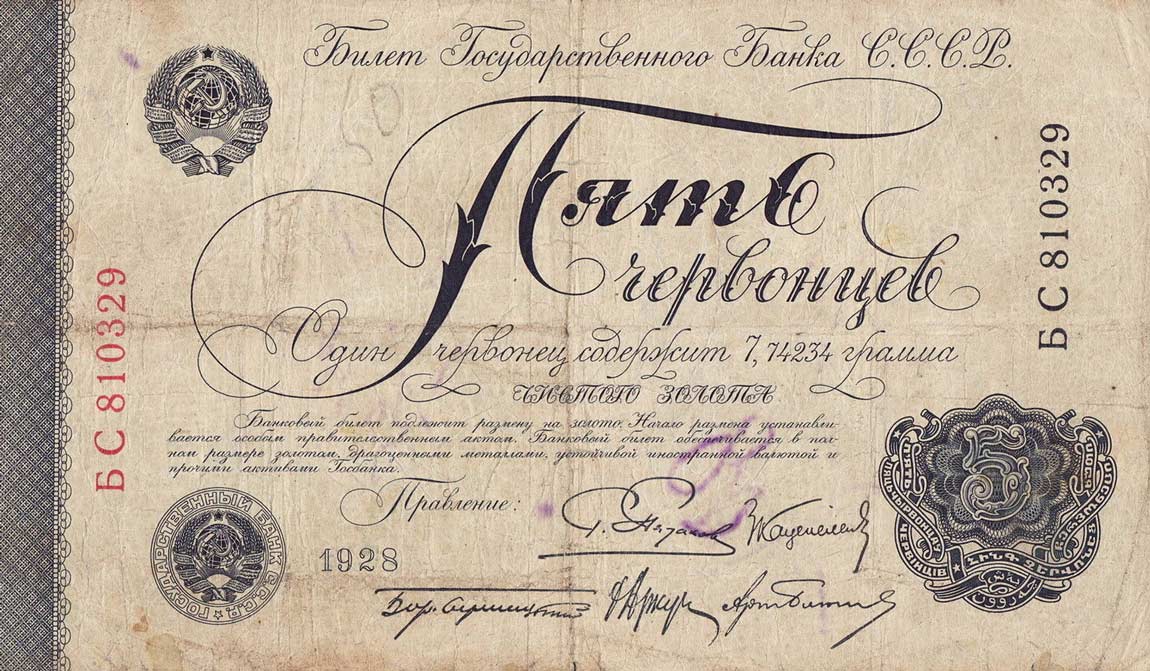 Билет Государственного Банка С.С.С.Р.
Пять
червонцев
БС 810329
БС 810329
Один червонец содержит 7,74234 грамма
ЧИСТОГО ЗОЛОТА
Банковый билет подлежит размену на золото. Начало размена устанавли-
вается особым правительственным актом. Банковый билет обеспечивается в пол-
ном размере золотом, драгоценными металлами, устойчивой иностранной валютой и
прочими активами Госбанка.
Правление:
1928
ГОСУДАРСТВЕННЫЙ БАНК С.С.С.Р.
5
ПЯТЬ
ЧЕРВОНЦІВ
ՀԻՆԳ ՉԵՐՎՈՆԵՑ